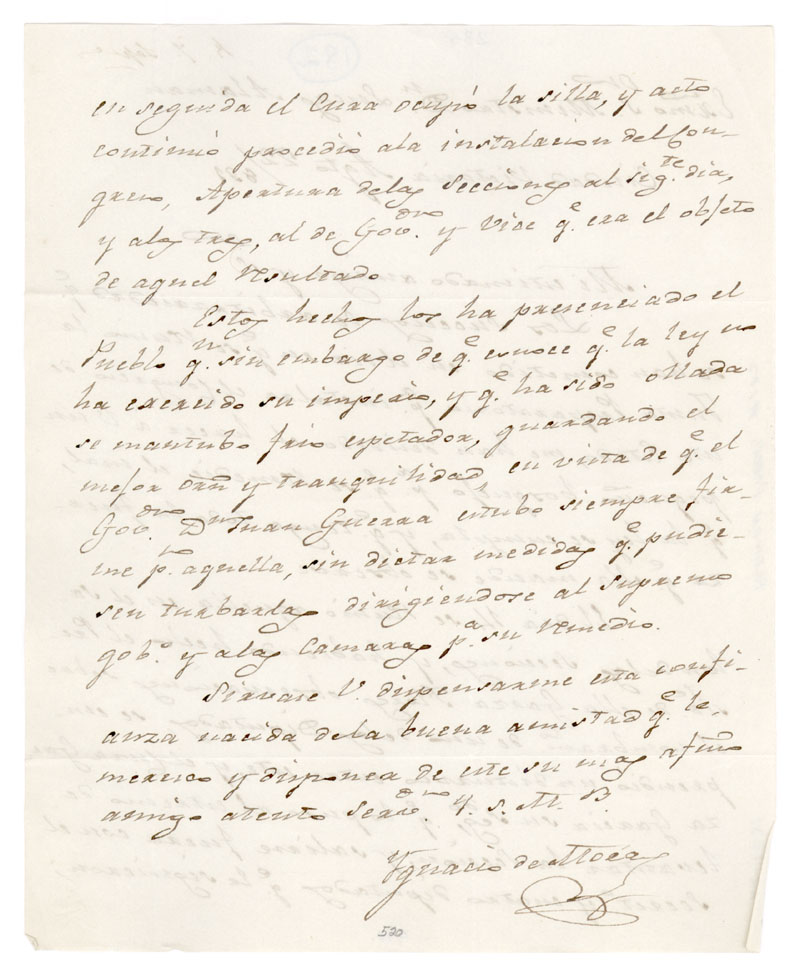 en segunda el Cura ocupó la silla, y acto
continuó procedió ala instalacion del Con-
greso, Apertura delas Secciones al sigte. dia,
y alas tres, al de Govor. y Vice qe. era el objeto
de aquel resultado
Estos hechos los ha presenciado el
Pueblo qn. sin embargo de qe. conoce qe. la ley no
ha exercido su imperio, y qe. ha sido ollada
se mantubo frio espetador, guardando el
mejor orn. y tranquilidad, en vista de qe. el
Govor. Dn. Juan Guerra estubo siempre fir-
me pr. aquella, sin dictar medidas qe. pudie-
sen turbarlas dirigiendose al supremo
gobo. y alas Camaras pa. su remedio.
Sirvase V. dispensarme esta confi-
anza nacida dela buena amistad qe. le
merezco y disponga de este su mas afmo
amigo atento servor. Q. S. M. B.
Ygnacio de
520